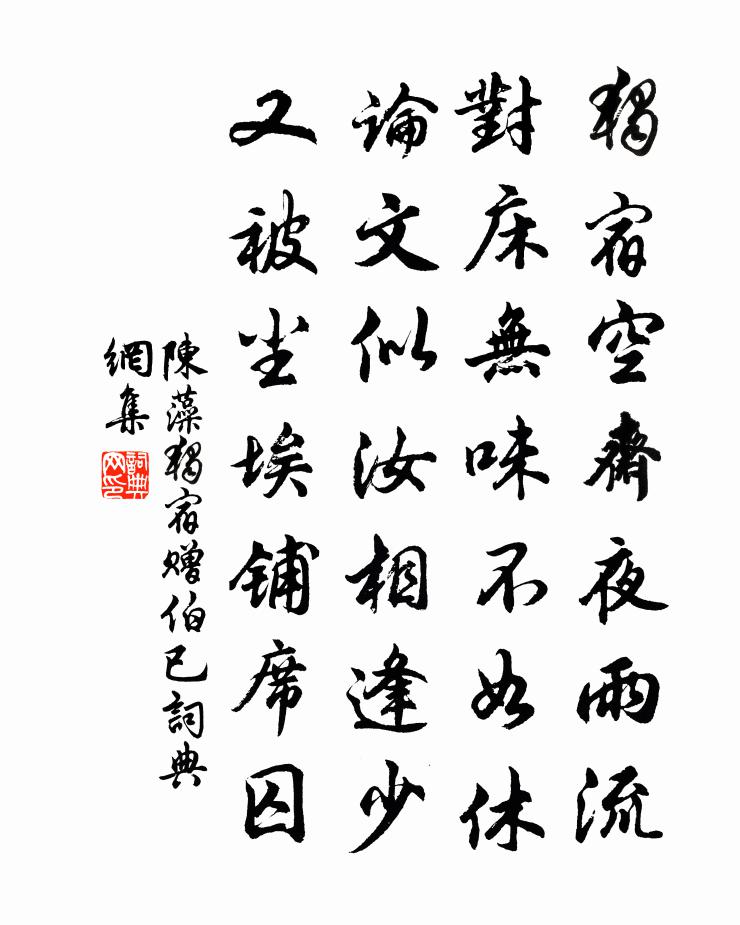 獨宿空齋夜雨流
對床無味不如休
論文似汝相逢少
又被尘埃鋪席囚
陳藻獨宿贈伯已詞典
網集
詞典
网印